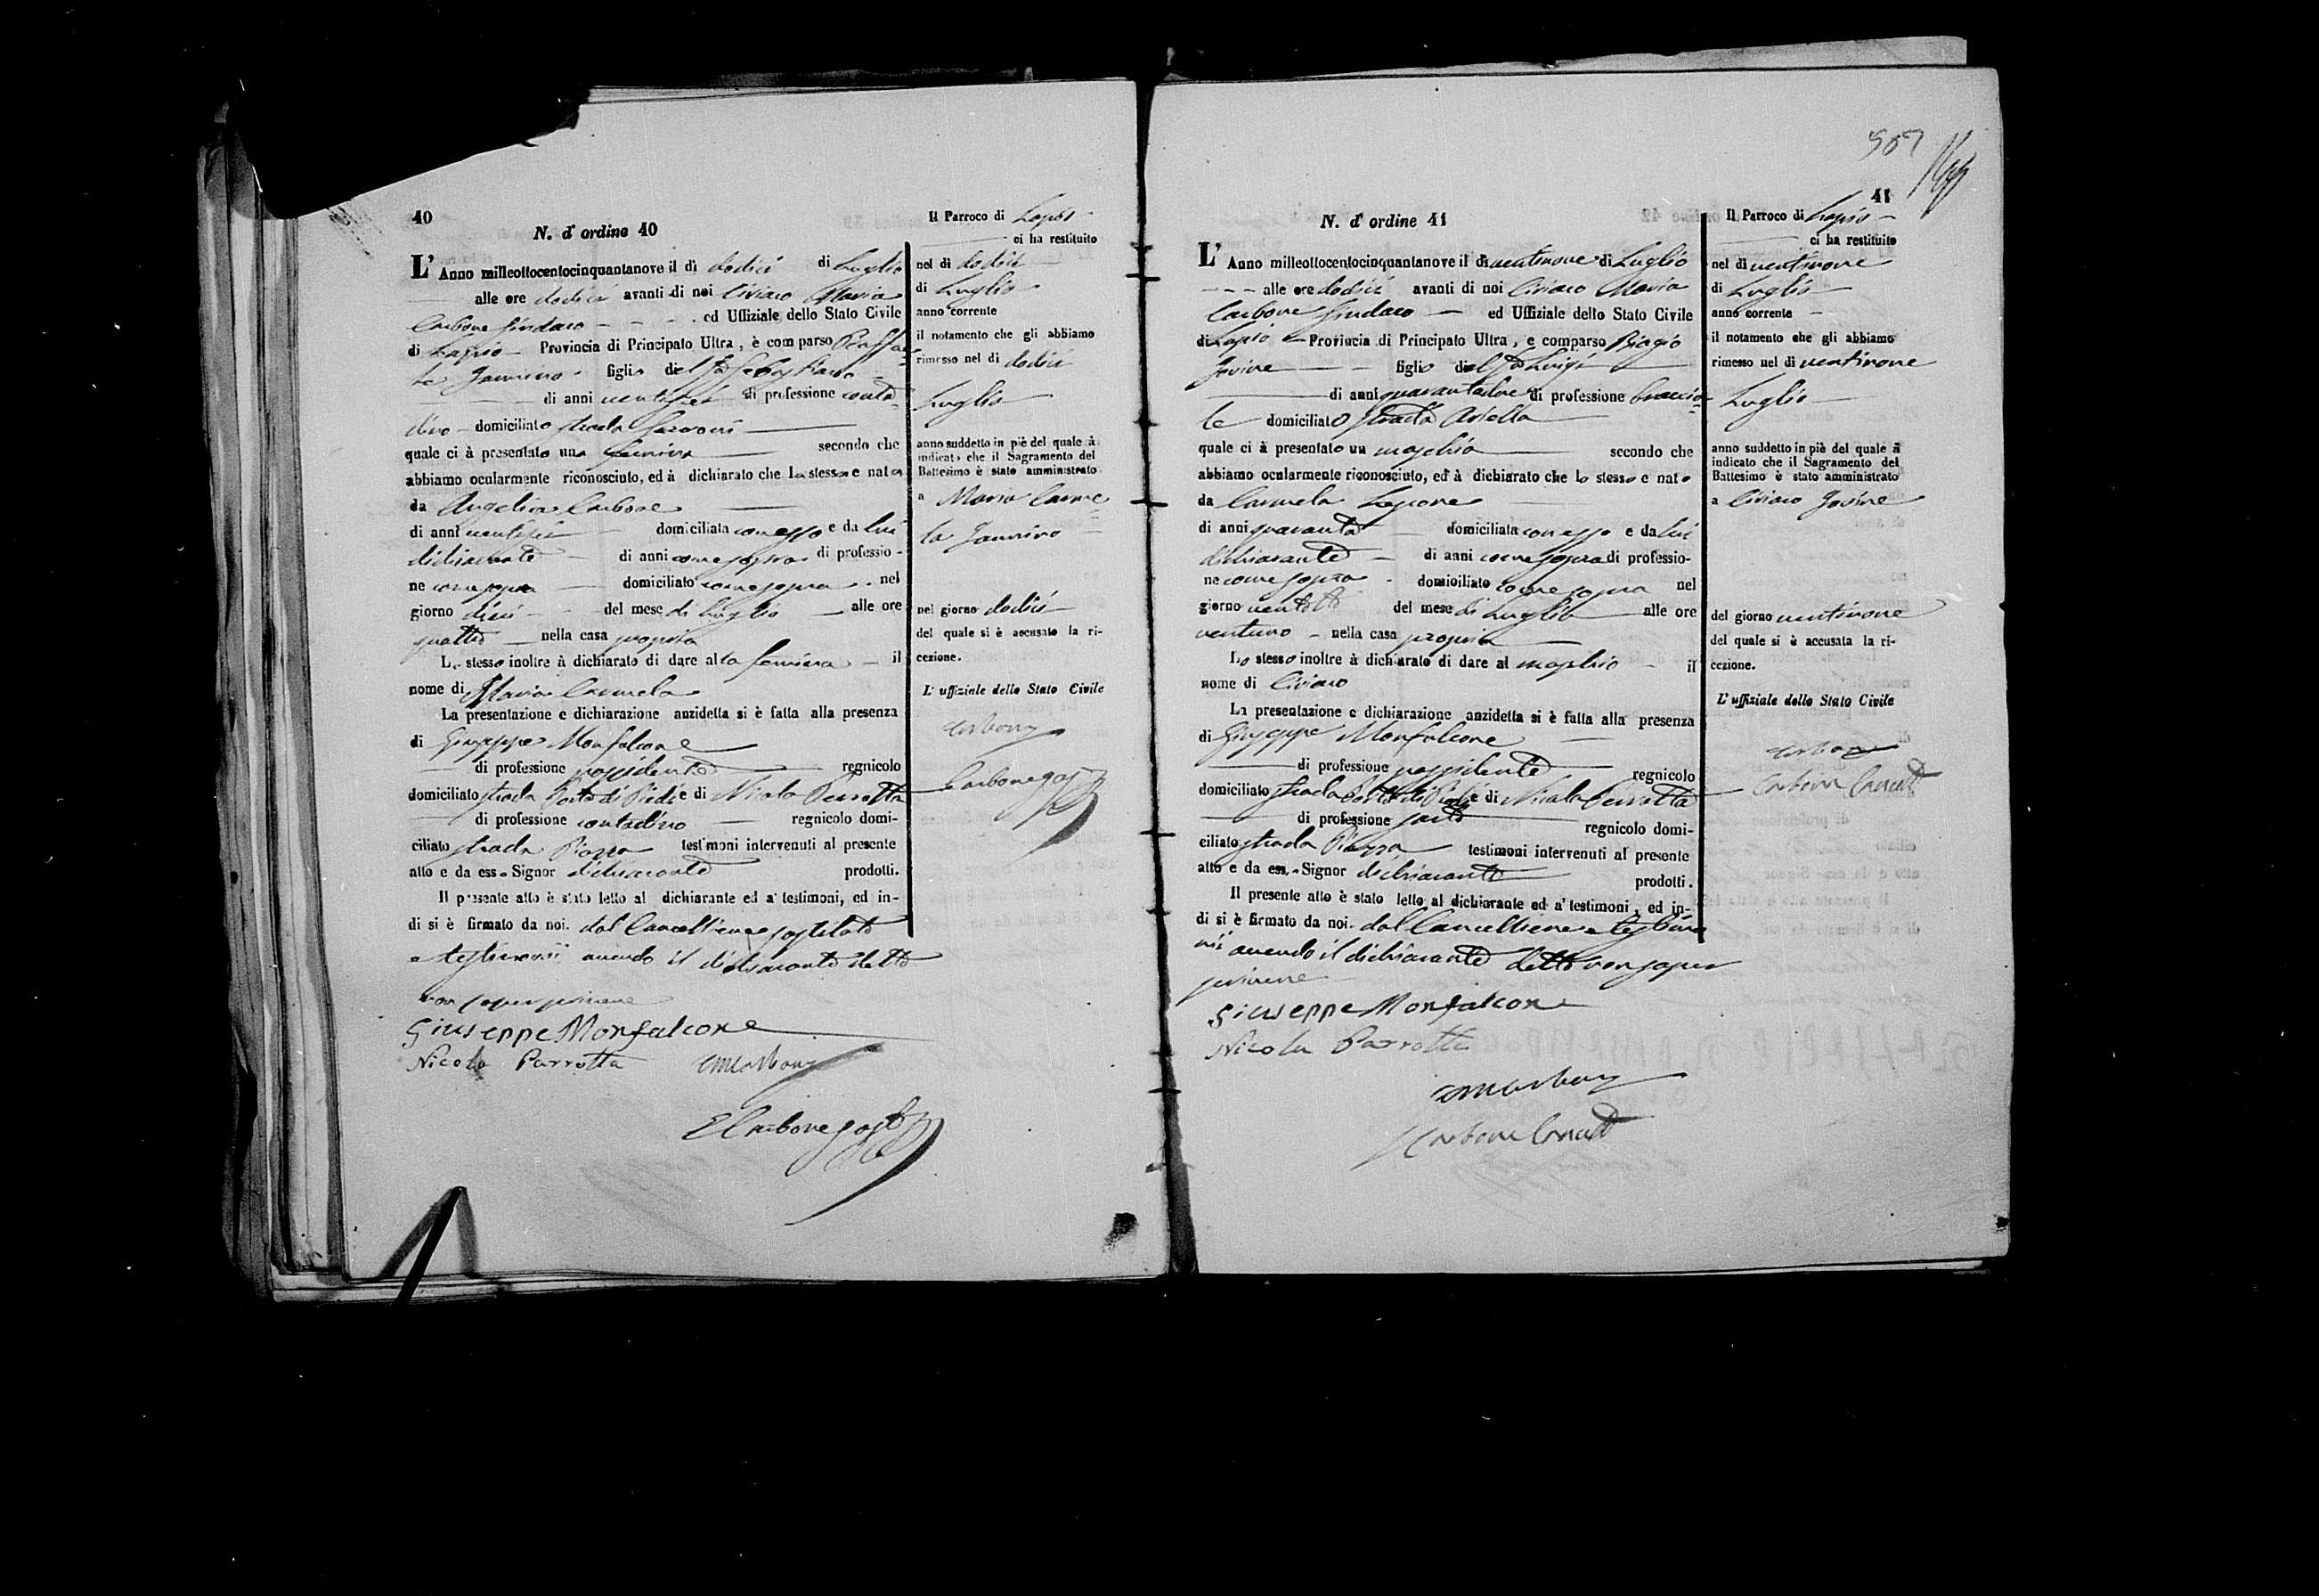 40
N. d' ordine 40
L' Anno milleottocentocinquantanove il dì dodici di Luglio
alle ore dodici avanti di noi Civiaco Maria
Carbone Sindaco ed Uffiziale dello Stato Civile
di Lapio Provincia di Principato Ultra, è comparso Raffae=
le Jannino figlio del fu Sebastiano
di anni ventisei di professione conta=
dino domiciliato strada
quale ci à presentato una femina secondo che
abbiamo ocularmente riconosciuto, ed à dichiarato che la stessa e nata
da Angelica Carbone
di anni ventisei domiciliata con esso e da lui
dichiarante di anni come sopra di professio-
ne come sopra domiciliato come sopra nel
giorno dieci del mese di Luglio alle ore
quattro nella casa propria
Lo stesso inoltre à dichiarato di dare alla femina il
nome di Maria Carmela
La presentazione e dichiarazione anzidetta si è fatta alla presenza
di Giuseppe Monfalcone
di professione possidente regnicolo
domiciliato strada Porta di Piedi e di Nicola Perrotta
di professione contadino regnicolo domi-
ciliato strada Piazza testimoni intervenuti al presente
atto e da esso Signor dichiarante prodotti.
Il presente atto è stato letto al dichiarante ed a' testimoni, ed in-
di si è firmato da noi. dal Cancelliere sostituto
e testimonii avendo il dichiarante detto
non saper scrivere
Giuseppe Monfalcone
Nicola Parrotta CMCarbone
ECarbone sost
Il Parroco di Lapio
ci ha restituito
nel dì dodici
di Luglio
anno corrente
il notamento che gli abbiamo
rimesso nel dì dodici
Luglio
anno suddetto in piè del quale à
indicato che il Sagramento del
Battesimo è stato amministrato
a Maria Carme=
la Jannino
nel giorno dodici
del quale si è accusato la ri-
cezione.
L' uffiziale dello Stato Civile
Carbone
Carbone sost
507
41
N. d' ordine 41
L' Anno milleottocentocinquantanove il dì ventinove di Luglio
alle ore dodici avanti di noi Civiaco Maria
Carbone Sindaco ed Uffiziale dello Stato Civile
di Lapio Provincia di Principato Ultra, e comparso Biagio
Jovine figlio del fu Luigi
di anni quarantadue di professione braccia=
le domiciliato strada Ariella
quale ci à presentato un maschio secondo che
abbiamo ocularmente riconosciuto, ed à dichiarato che lo stesso e nato
da Carmela Lepore
di anni quaranta domiciliata con esso e da lui
dichiarante di anni come sopra di professio-
ne come sopra domiciliato come sopra nel
giorno ventotto del mese di Luglio alle ore
ventuno nella casa propria
Lo stesso inoltre à dichiarato di dare al maschio il
nome di Civiaco
La presentazione e dichiarazione anzidetta si è fatta alla presenza
di Giuseppe Monfalcone
di professione possidente regnicolo
domiciliato strada Porta di Piedi e di Nicola Perrotta
di professione sarto regnicolo domi-
ciliato strada Piazza testimoni intervenuti al presente
atto e da esso Signor dichiarante prodotti.
Il presente atto è stato letto al dichiarante ed a' testimoni, ed in-
di si è firmato da noi. dal Cancelliere e testimo
nii avendo il dichiarante detto non saper
scrivere
Giuseppe Monfalcone
Nicola Parrotta
CMCarbone
Carbone Canc
Il Parroco di Lapio
ci ha restituito
nel dì ventinove
di Luglio
anno corrente
il notamento che gli abbiamo
rimesso nel dì ventinove
Luglio
anno suddetto in piè del quale à
indicato che il Sagramento del
Battesimo è stato amministrato
a Civiaco Jovine
del giorno ventinove
del quale si è accusata la ri-
cezione.
L' uffiziale dello Stato Civile
Carbone
Carbone Canc